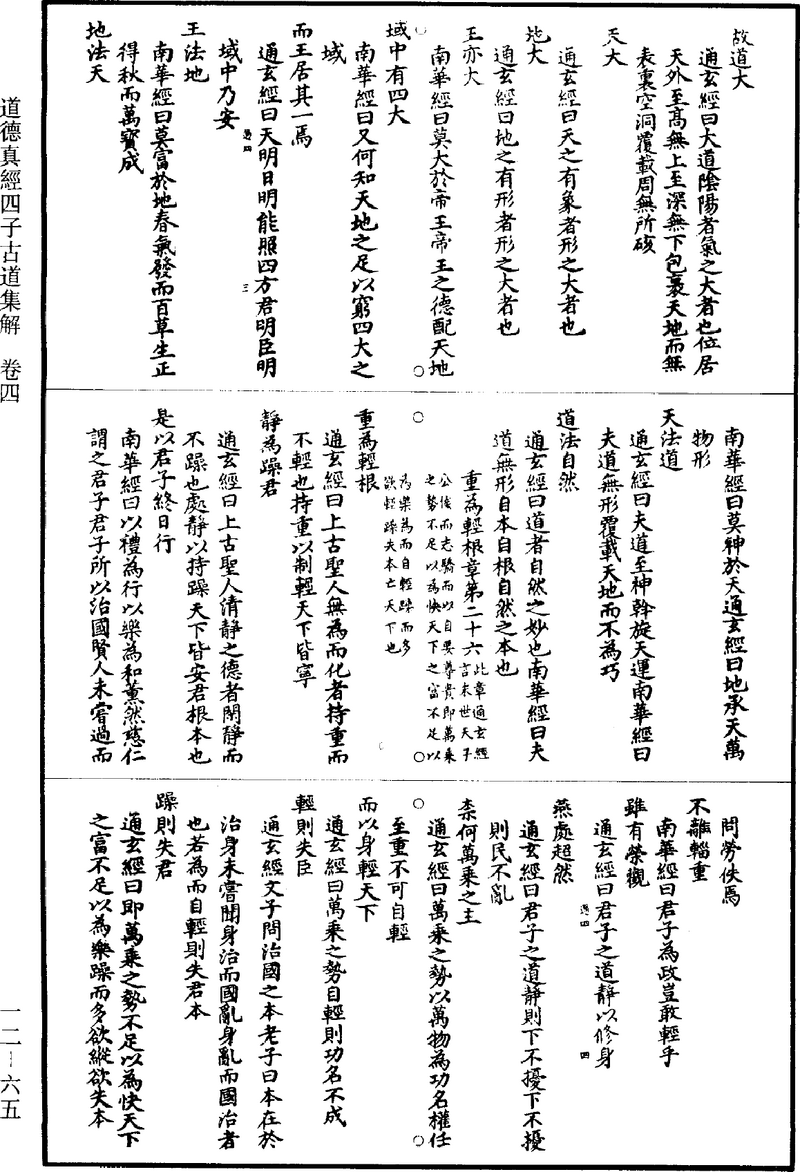 故道大
通玄經曰大道陰陽者氣之大者也位居
天外至高無上至深無下包裹天地而無
表裏空洞覆載周無所硋
天大
通玄經曰天之有象者形之大者也
地大
通玄經曰地之有形者形之大者也
王亦大
南華經曰莫大於帝王帝王之德配天地
域中有四大
南華經曰又何知天地之足以窮四大之
域
而王居其一焉
通玄經曰天明日明能照四方君明臣明
域中乃安
王法地
南華經曰莫富於地春氣發而百草生正
得秋而萬寶成
地法天
南華經曰莫神於天通玄經曰地承天萬
物形
天法道
通玄經曰夫道至神斡旋天運南華經曰
夫道無形覆載天地而不為巧
道法自然
通玄經曰道者自然之妙也南華經曰夫
道無形自本自根自然之本也
重為輕根章第二十六此章通玄經
言末世天子
公侯而志驕而以自要尊貴即萬乘
之勢不足以為快天下之富不足以
為樂為而自輕躁而多
欲輕躁失本亡天下也
重為輕根
通玄經曰上古聖人無為而化者持重而
不輕也持重以制輕天下皆寧
靜為躁君
通玄經曰上古聖人清靜之德者閑靜而
不躁也處靜以持躁天下皆安君根本也
是以君子終日行
南華經曰以禮為行以樂為和薰然慈仁
謂之君子君子所以治國賢人未嘗過而
問勞佚焉
不離輜重
南華經曰君子為政豈敢輕乎
雖有榮觀
通玄經曰君子之道靜以修身
燕處超然
通玄經曰君子之道靜則下不擾下不擾
則民不亂
柰何萬乘之主
通玄經曰萬乘之勢以萬物為功名權任
至重不可自輕
而以身輕天下
通玄經曰萬乘之勢自輕則功名不成
輕則失臣
通玄經文子問治國之本老子曰本在於
治身未嘗聞身治而國亂身亂而國治者
也若為而自輕則失君本
躁則失君
通玄經曰即萬乘之勢不足以為快天下
之富不足以為樂躁而多欲縱欲失本
道德真經四子古道集解　卷四
一二―六五